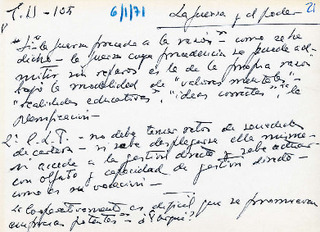 T.U - 108 6/1/71 La fuerza y el poder 21
"Si la fuerza precede a la razón" - como se ha
dicho - la fuerza cuya procedencia se puede ad-
mitir sin reparos es la de la propia razón
bajo la modalidad de "valores mentales" -
"realidades educativas", "ideas correctas", la
planificación -
2º C.L.P. - no debe tener actos de
de cartera - ni debe desplegarse ella misma
ni accede a la gestión directa y debe actuar
con olfato y capacidad de gestión directa -
como es su vocación -
es difícil que se promuevan
empresas potentes - ¿Por qué?